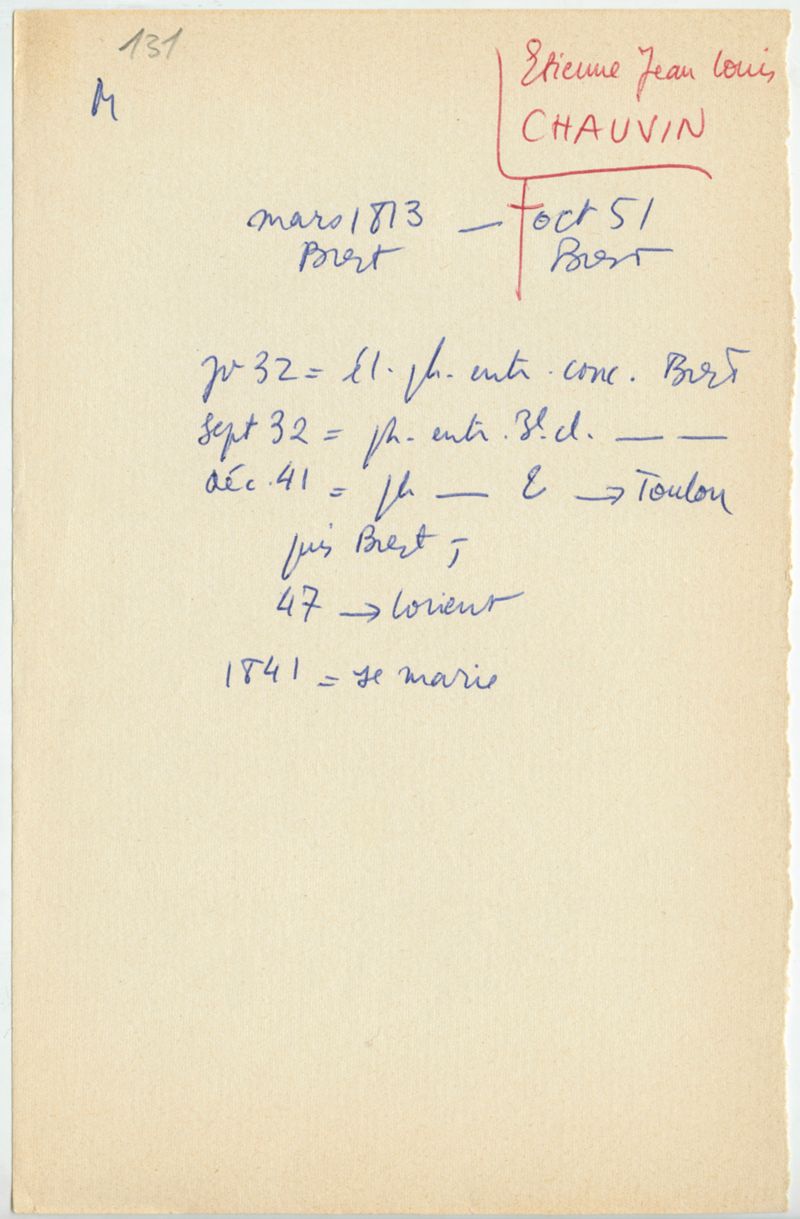 131
M
Etienne Jean Louis
CHAUVIN
mars 1813 — † oct 51
Brest Brest
jv 32 = él. ph. entr. conc. Brest
sept 32 = ph. entr. 3e cl. — —
déc. 41 = ph — 2 → Toulon
puis Brest ;
47 → Lorient
1841 = se marie